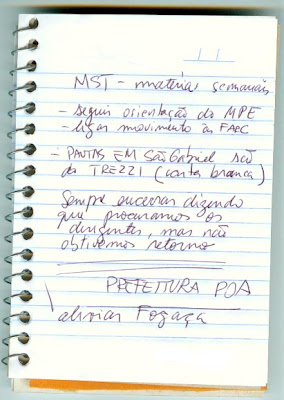 MST - matérias semanais
- seguir orientação do MPE
- ligar movimento às FARC
- PAUTAS EM São Gabriel são
do TREZZI (cartas brancas)
Sempre encerrar dizendo
que procuramos os
dirigentes, mas não
obtivemos retorno
PREFEITURA POA
aliviar Fogaça